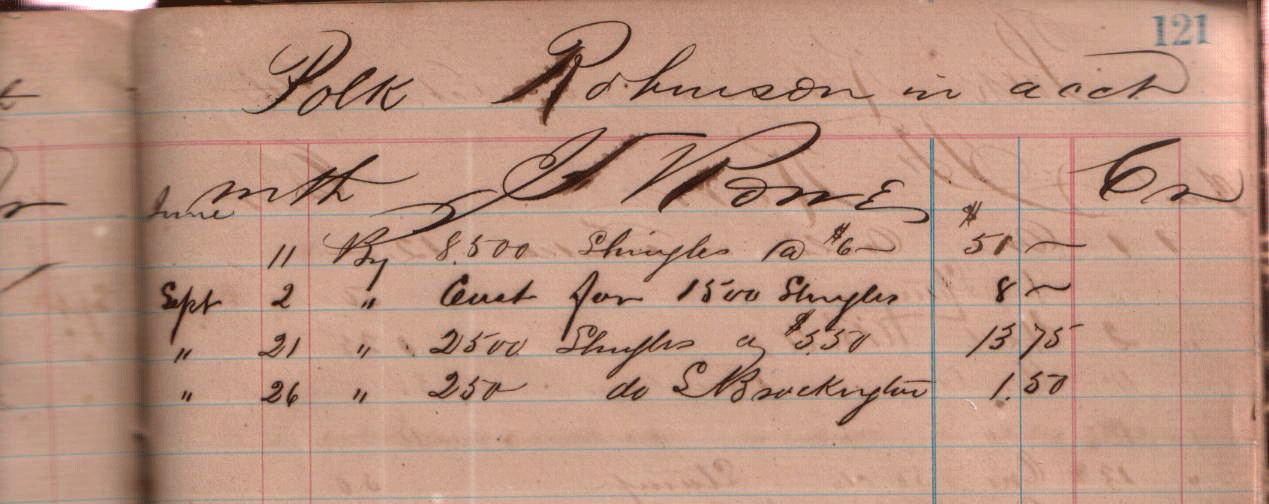 121
Polk Robinson in acct
with J V Rowe Cr
June 11 By 8.500 Shingles @ $6 $51
Sept 2 " for 1500 Shingles 8
" 21 " 2500 Shingles @ $5.50 13 75
" 26 " 250 do S Brockington 1.50